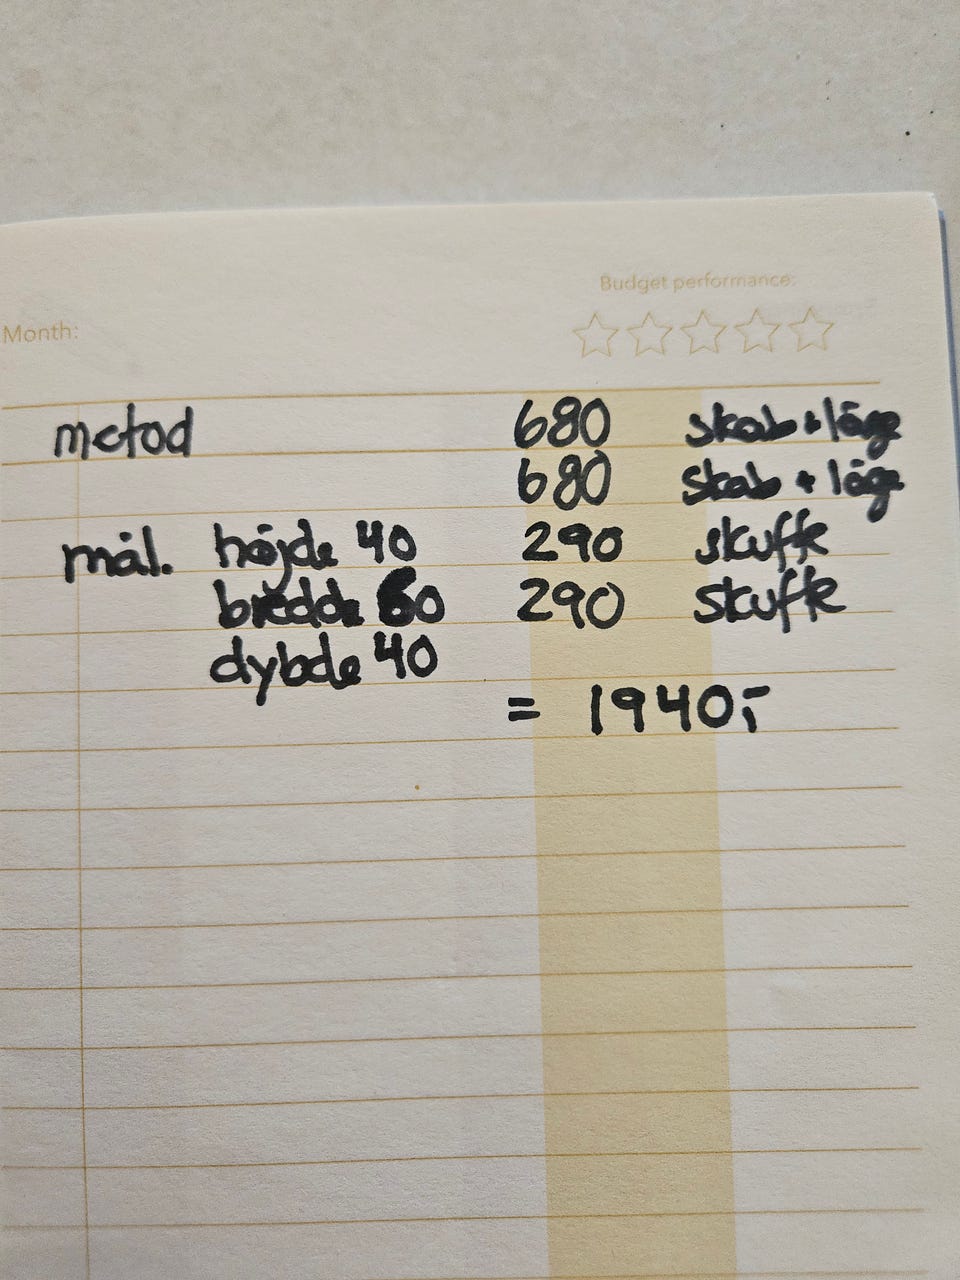 Budget performance:
Month:
metod 680 skab + låge
680 skab + låge
mål. højde 40 290 skuffe
bredde 60 290 skuffe
dybde 40
= 1940,-